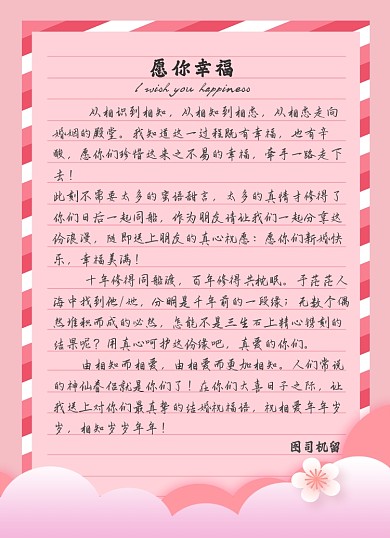 愿你幸福
I wish you happiness
从相识到相知，从相知到相恋，从相恋走向
婚姻的殿堂。我知道这一过程既有幸福，也有辛
酸，愿你们珍惜这来之不易的幸福，牵手一路走下
去！
此刻不需要太多的蜜语甜言，太多的真情才修得了
你们日后一起同船，作为朋友请让我们一起分享这
份浪漫，随即送上朋友的真心祝愿：愿你们新婚快
乐，幸福美满！
十年修得同船渡，百年修得共枕眠。于茫茫人
海中找到他/她，分明是千年前的一段缘；无数个偶
然堆积而成的必然，怎能不是三生石上精心镌刻的
结果呢？用真心呵护这份缘吧，真爱的你们。
由相知而相爱，由相爱而更加相知。人们常说
的神仙眷侣就是你们了！在你们大喜日子之际，让
我送上对你们最真挚的结婚祝福语，祝相爱年年岁
岁，相知岁岁年年！
图司机留